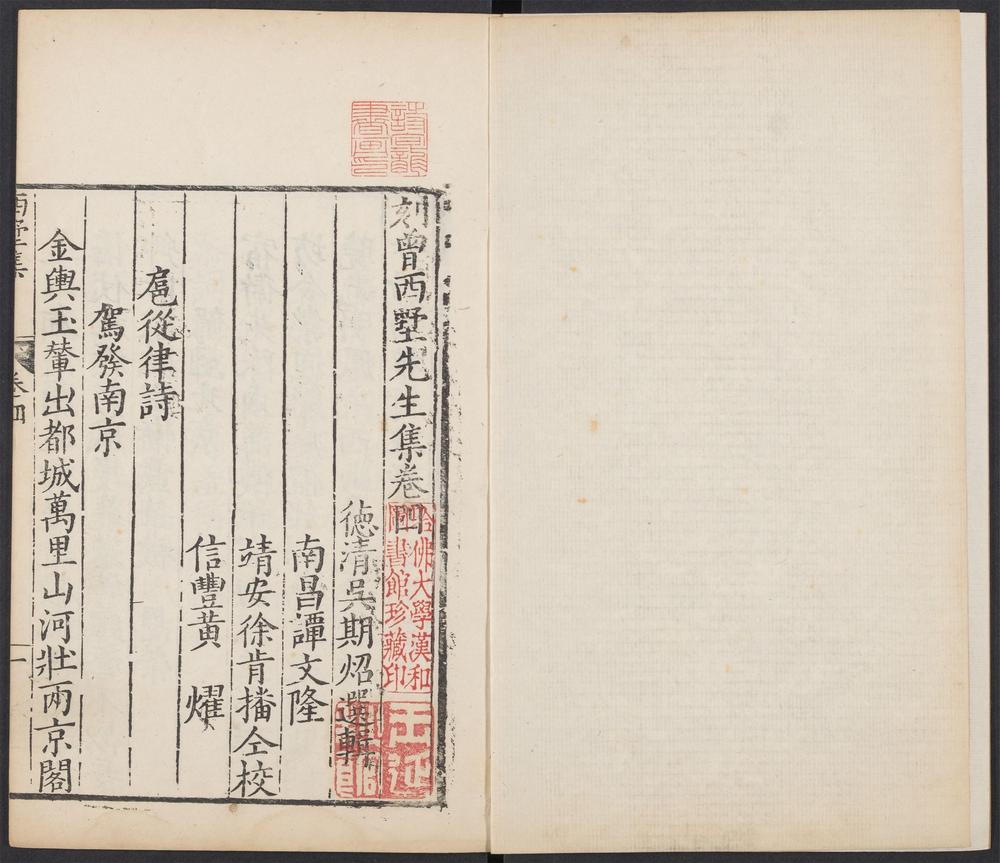 刻曾西墅先生集卷四
德清吳期炤選輯
南昌譚文隆
靖安徐肯播仝校
信豐黃　燿
扈從律詩
駕發南京
金輿玉輦出都城萬里山河壯兩京閣
西墅集 卷四 一
哈佛大學漢和
圖書館珍藏印